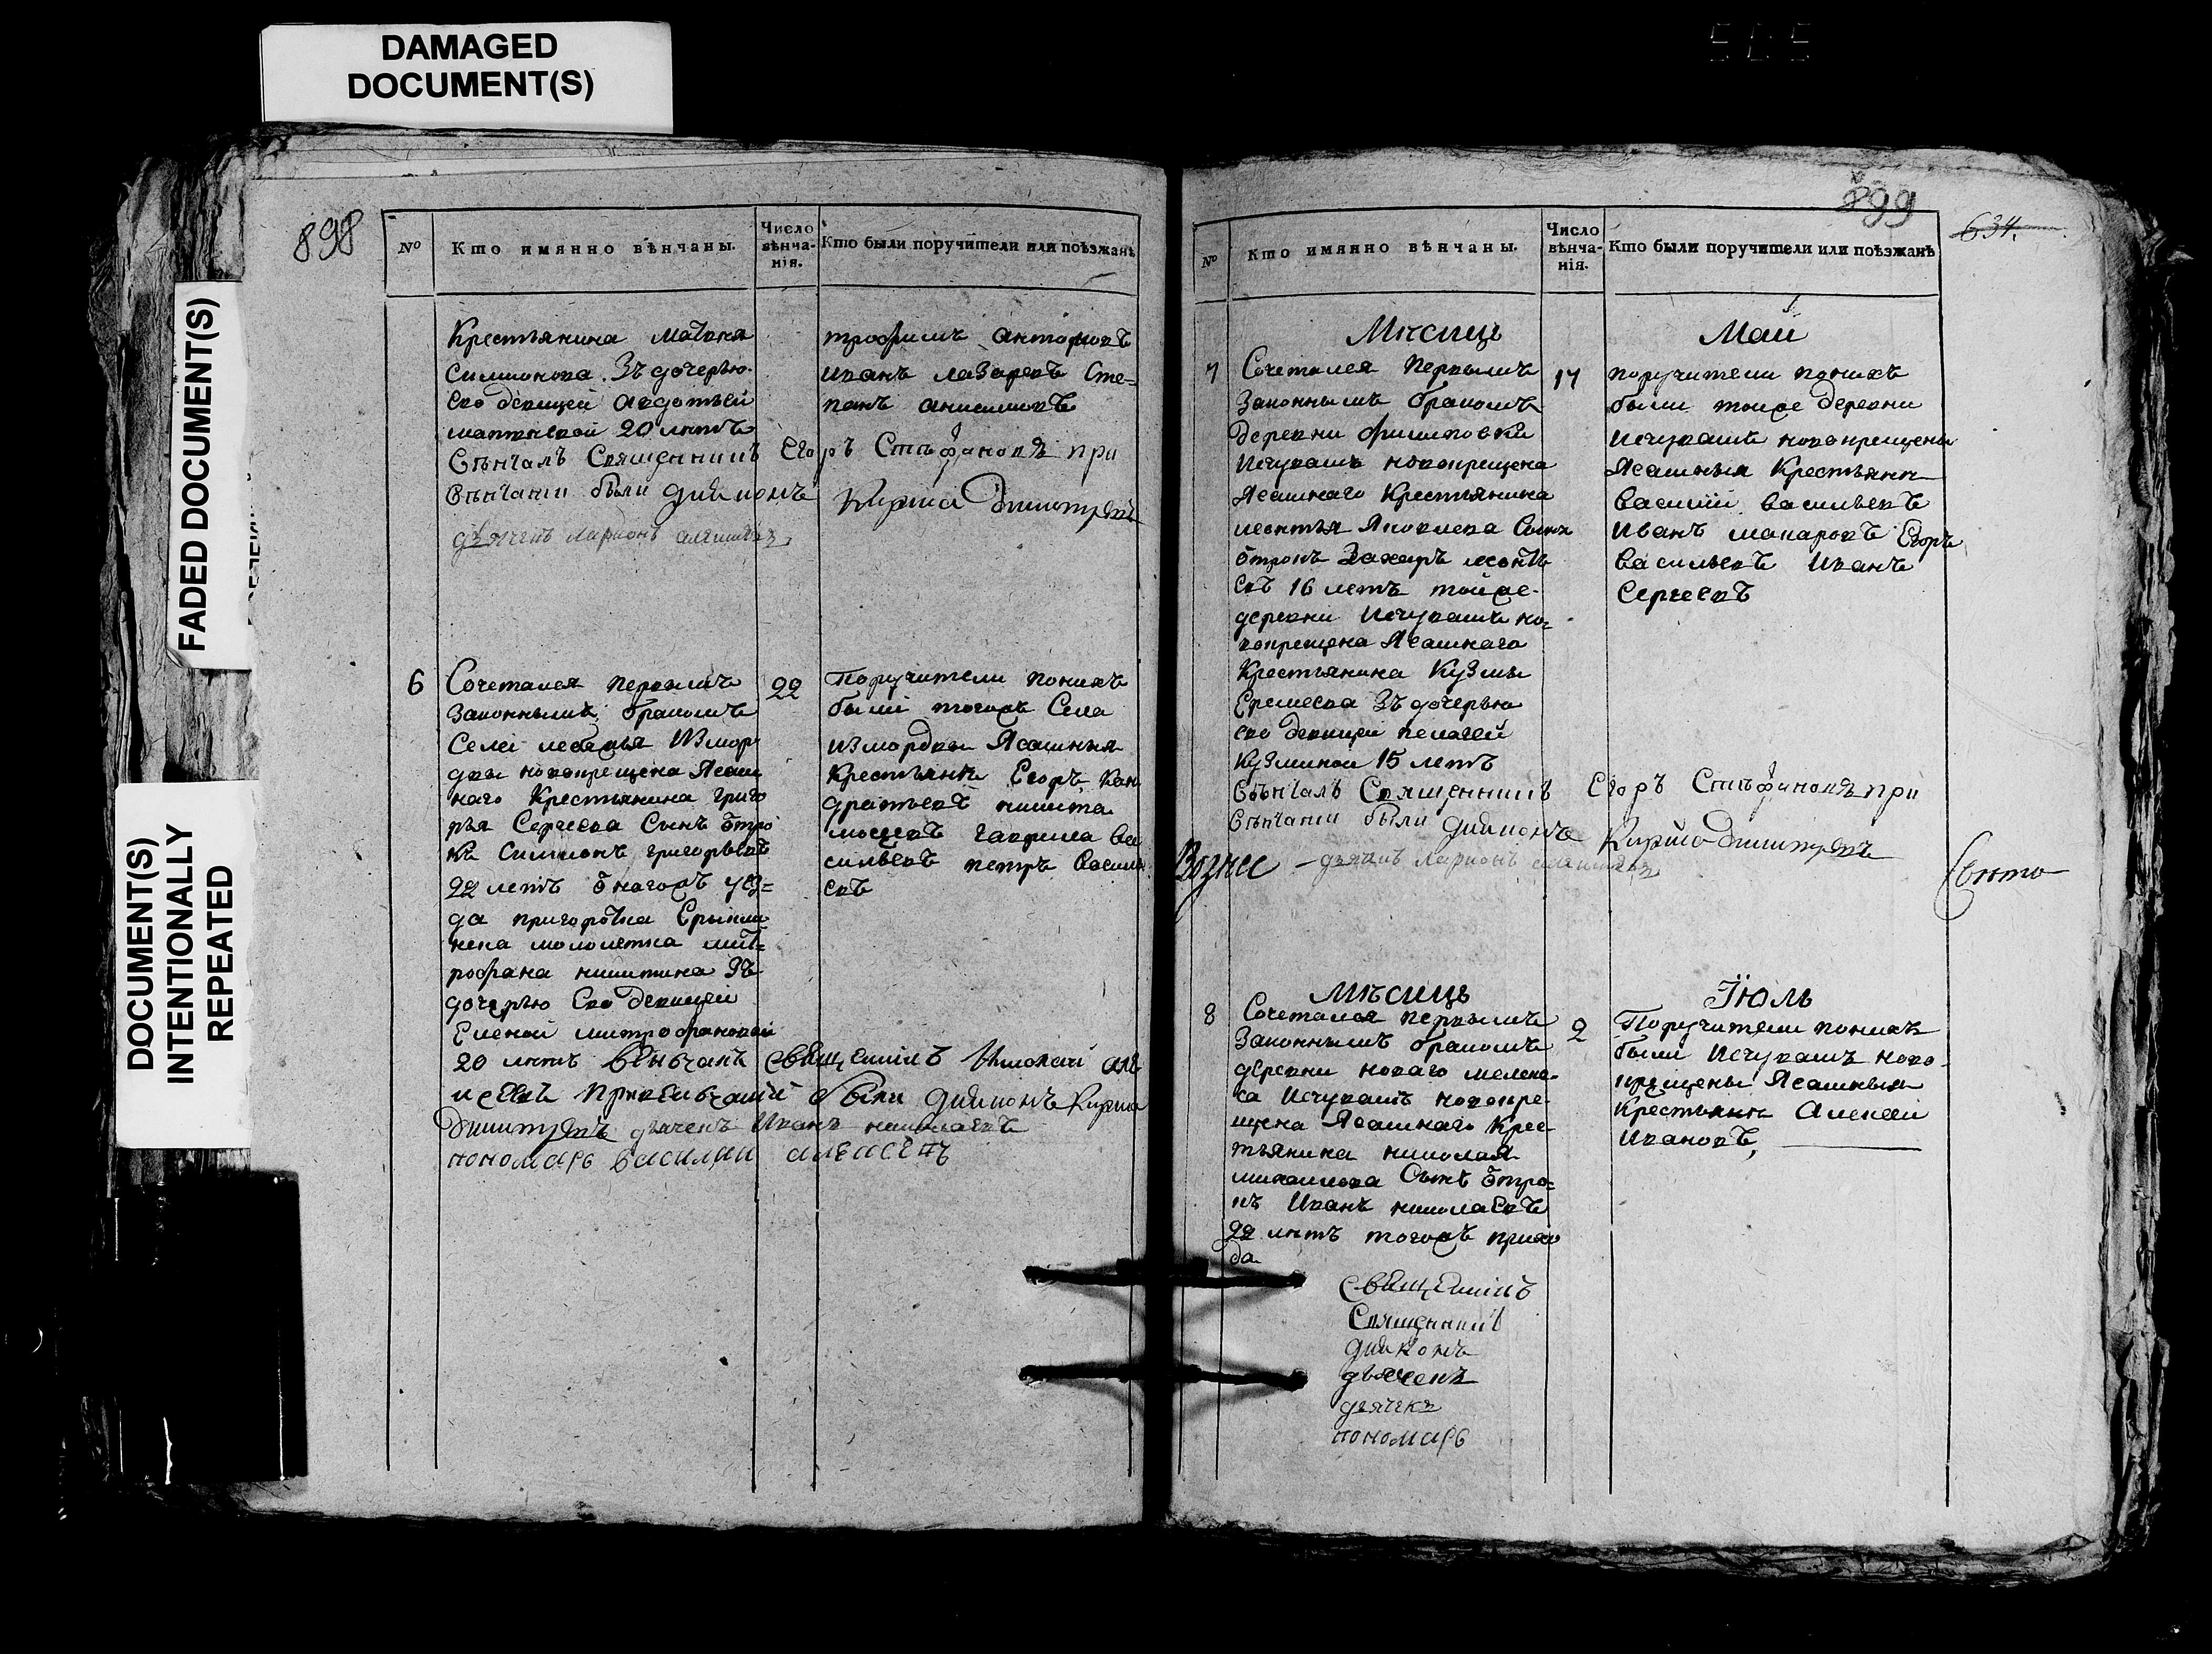 DAMAGED
DOCUMENT(S)
FADED DOCUMENT(S)
DOCUMENT(S)
INTENTIONALLY
REPEATED
898
№
Кто имянно вѣнчаны.
Число вѣнча-нія.
Кто были поручители или поѣзжанѣ
Крестьянина Матвея
Симионова. Зъ дочерью
Ево девицей Авдотьей
20 лѣтъ
Вѣнчалъ Священникъ Егоръ Стефановъ при
Вѣнчаніи были диаконъ Кирила Димитревъ
дьячекъ Ларионъ
трофимъ
иванъ лазаревъ Сте=
панъ анисимовъ
6
Сочетался первымъ
Законнымъ бракомъ
Села Измор
двы новокрещена Ясаш
наго Крестьянина григо
рья Сергеева Сынъ отро
къ Симионъ григорьевъ
22 летъ уез=
да пригоротка Ерыкли
мит=
рофана никитина Зъ
дочерью Ево девицей
Еленой митрофановой
20 лѣтъ Веньчалъ священникъ Николай але
иевъ были диаконъ Кирила
Димитревъ дьячекъ Иванъ николаевъ
пономарь василии алеисеевъ
22
Поручители поникъ
были тогожъ Села
измордвы Ясашныя
Крестьяня Егоръ кан
дратьевъ никита
гаврила ва
сильевъ петръ василь
евъ
899
634.
№
Кто имянно вѣнчаны.
Число вѣнча-нія.
Кто были поручители или поѣзжанѣ
Мѣсицъ Маи
7
Сочетался Первымъ
Законнымъ бракомъ
Деревни Филиповки
Исчувашъ новокрещена
Ясашнаго Крестьянина
леонтья Яковлева Сынъ
отрокъ Захаръ леонть
евъ 16 летъ тойже
деревни Исчувашъ но=
вокрещена Ясашнаго
Крестьянина Кузмы
Еремеева Зъ дочерью
ево девицей пелагей
Кузминой 15 летъ
Вѣнчалъ Священникъ Егоръ Стефановъ при
Вѣнчаніи были диаконъ Кирила Димитревъ
Вознес – дьячекъ Ларионъ
17
поручители поникъ
были тойже деревни
Исчувашъ новокрещены
Ясашныя Крестьяня
Василий Васильевъ
Иванъ макаровъ Егоръ
Васильевъ Иванъ
Сергеевъ
Мѣсицъ Їюль
8
Сочетался первымъ
Законнымъ бракомъ
деревни новаго мелеке
са Исчувашъ новокре
щена Ясашнаго Крес
тьянина николая
михаилова Сынъ отро=
къ Иванъ николаевъ
22 лѣтъ тогожъ прихо
да
2
Поручители поникъ
были Исчувашъ ново
крещены Ясашныя
Крестьяня Алексей
Ивановъ,
священникъ
Священникъ
диаконъ
дьячекъ
дьячекъ
пономарь